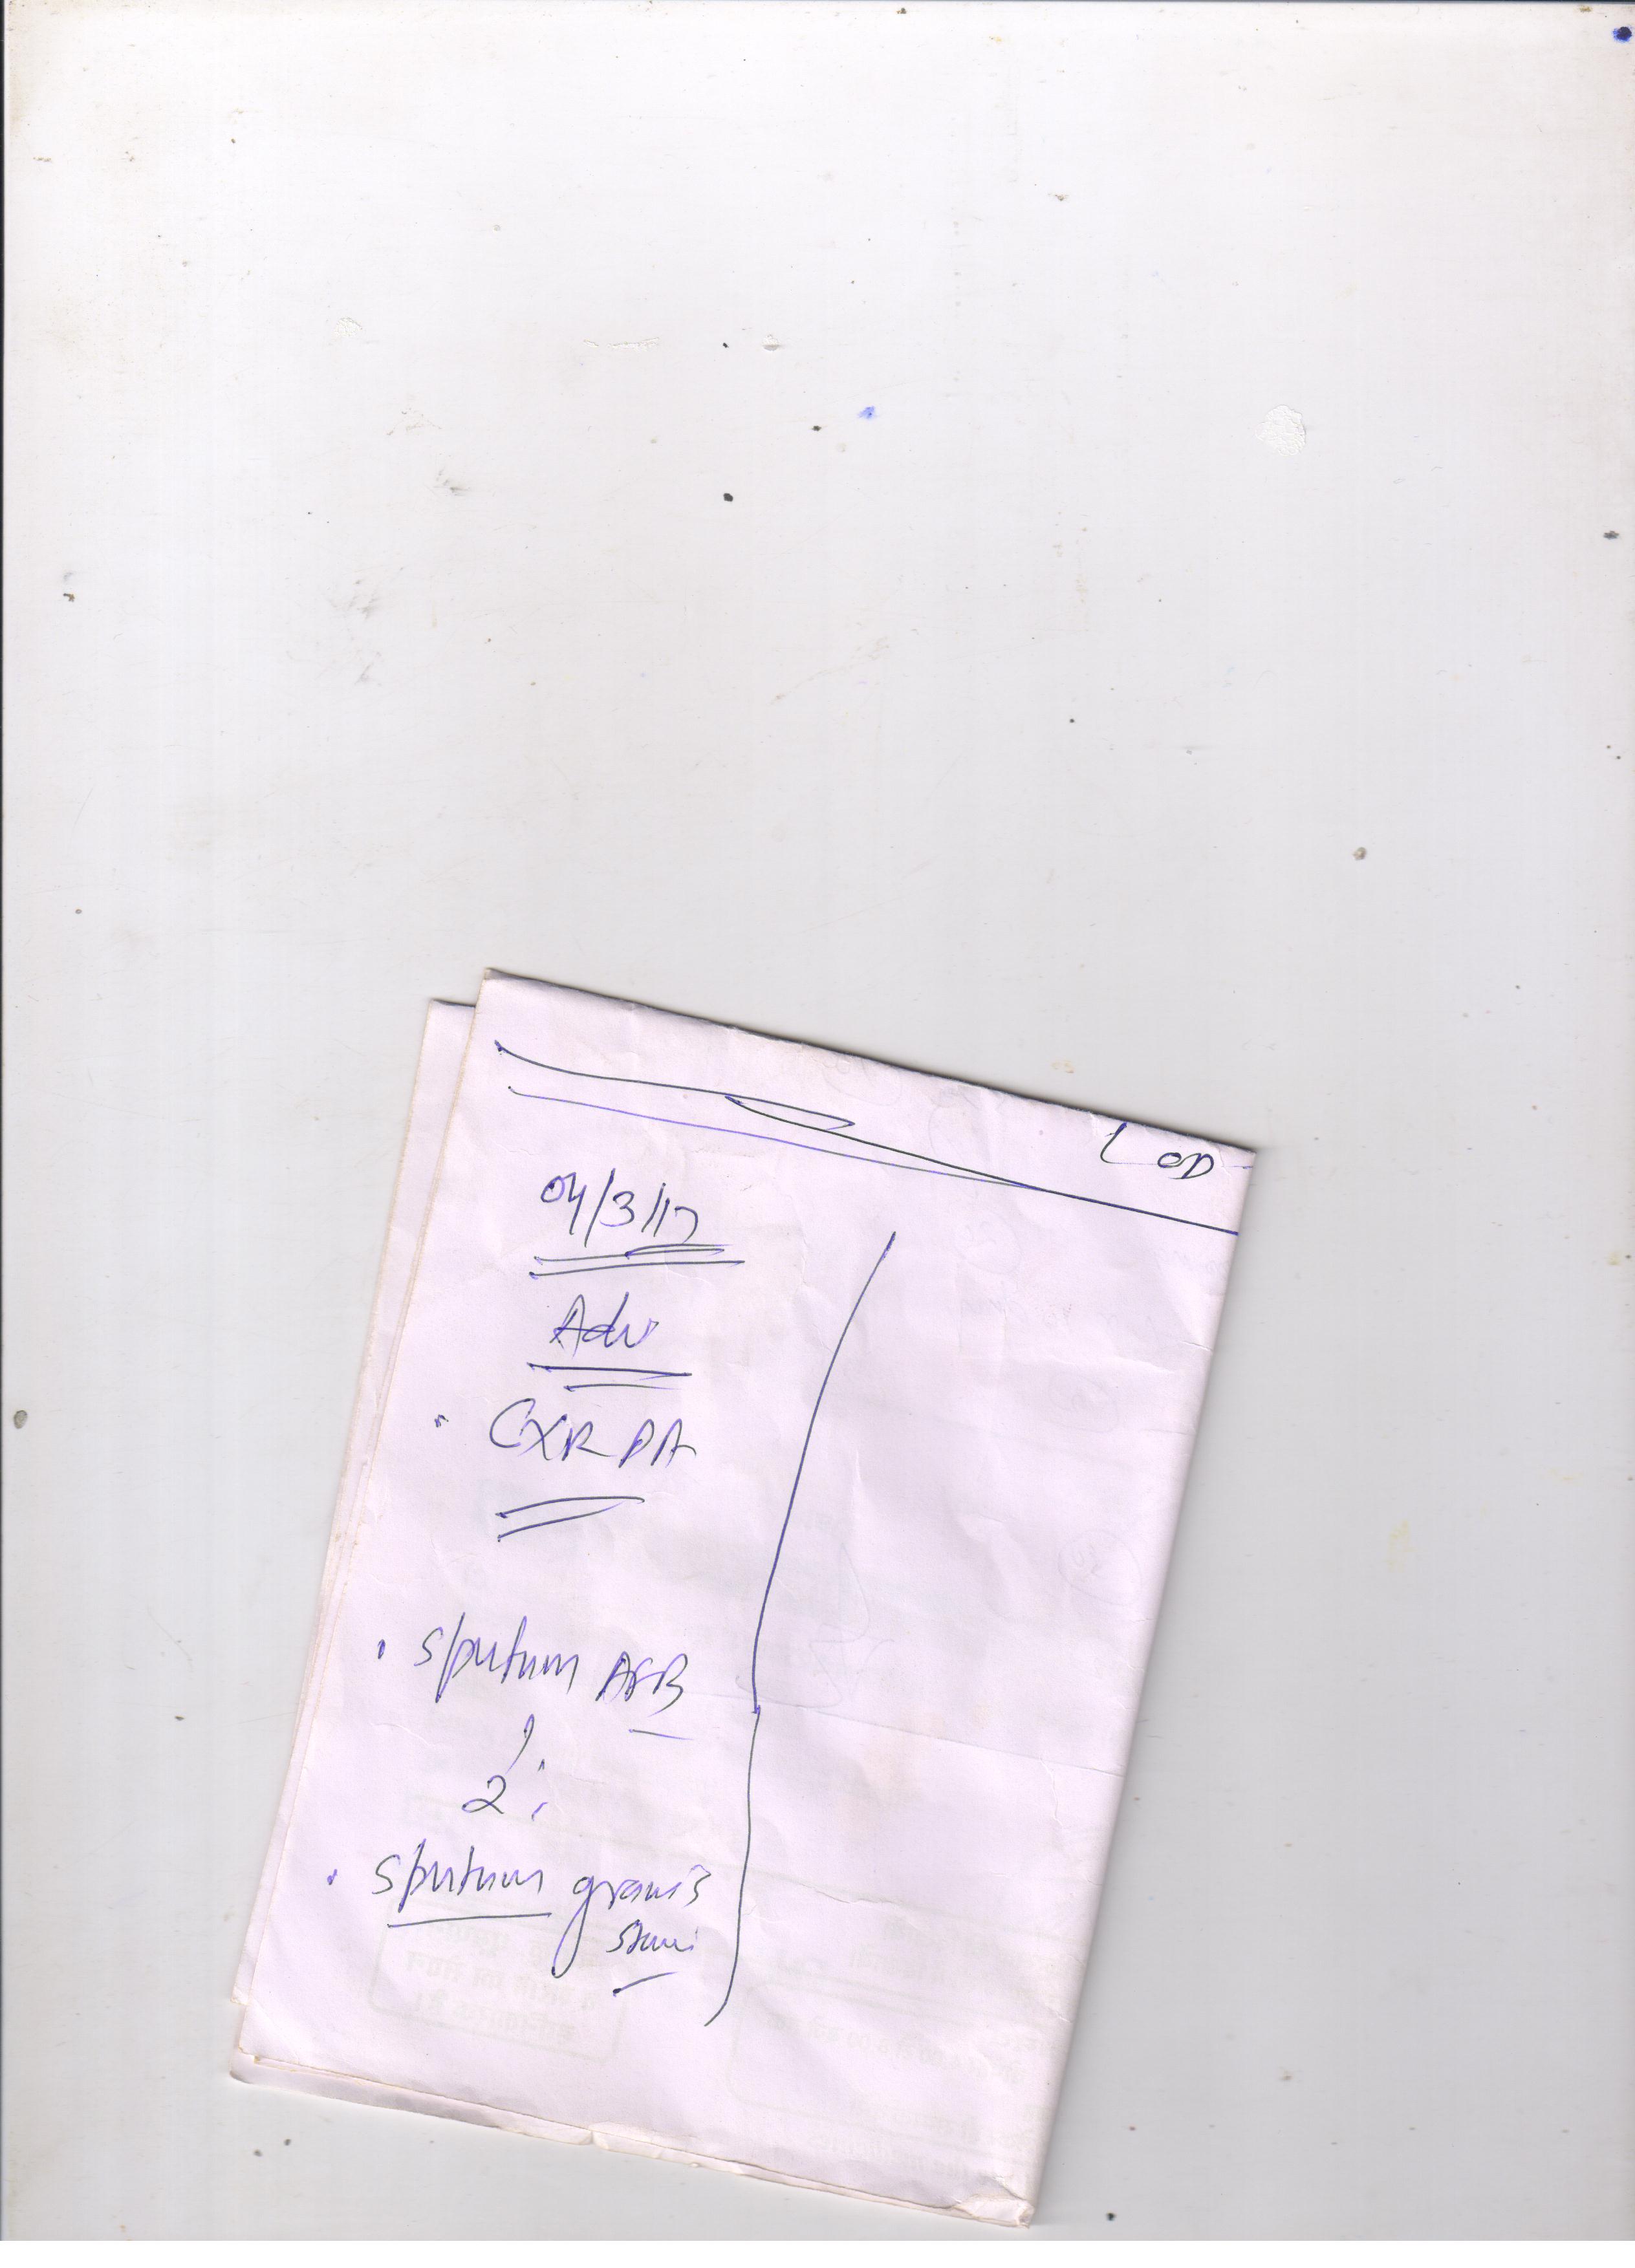 OD
04/3/17
Adv
· CXR PA
· Sputum AFB
2
· Sputum gram's
stain